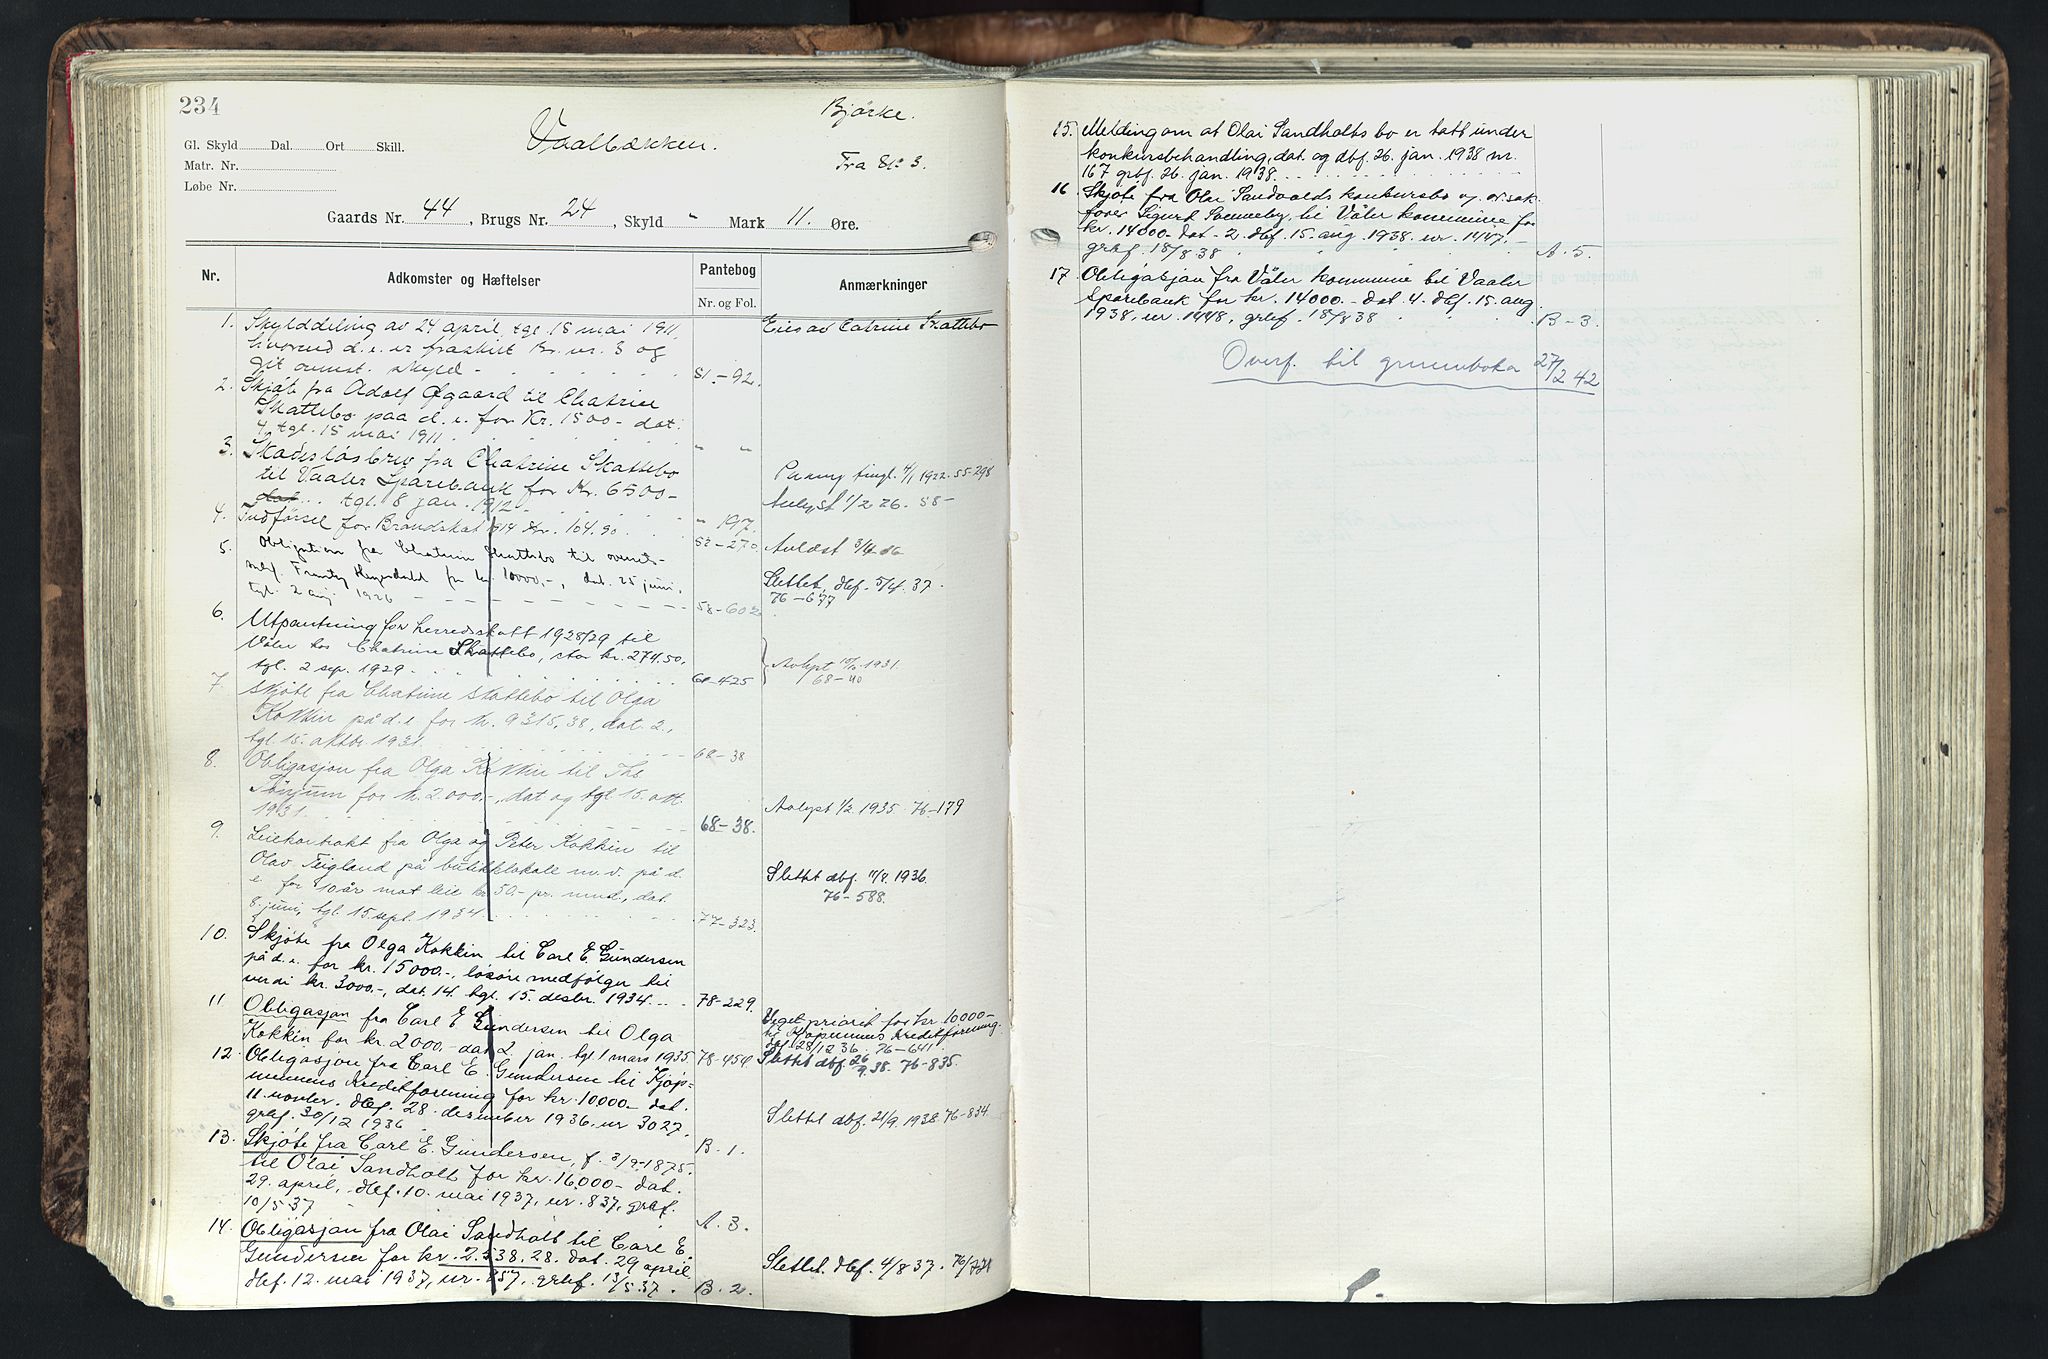 234
Vaalbækken.
Bjørke.
Fra 81⁰ 3.
Gl. Skyld Dal. Ort Skill.
Matr. Nr.
Løbe Nr.
Gaards Nr. 44, Brugs Nr. 24, Skyld " Mark 11. Øre.
Nr. Adkomster og Hæftelser Pantebog Nr. og Fol. Anmærkninger
1. Skylddeling av 24 april, tgl. 15 mai 1911, Eies av Catrine Skattebo
hvorved d. e. er fraskilt Br. nr. 3 og
git ovenst. skyld - 51.-92.
2. Skjøte fra Adolf Øgaard til Chatrine
Skattebo paa d. e. for Kr. 1500- dat.
4, tgl. 15 mai 1911. " "
3. Skadesløsbrev fra Chatrine Skattebo
til Vaaler Sparebank for Kr. 6500- Pany tingl. 4/1 1922. 55-298
dat... tgl. 8 jan. 1912. " 197. Avlyst 1/2 26. 58-
4. Indførsel for Brandskat 1914 Kr. 104.90 52-270. Avlæst
5. Obligation fra Chatrine Skattebo til overrets-
sakf. for kr. 10000,-, dat. 25 juni, Slettet, dbf. 5/4. 37.
tgl. 2 aug 1926 58-602 76-677
6. Utpantning for herredsskatt 1928/29 til
Våler hos Chatrine Skattebo, stor kr. 274.50.
tgl. 2 sep. 1929. 60-425 Avlyst 1931.
68-40
7. Skjøte fra Chatrine Skattebo til Olga
Kokkin på d. e. for kr. 9315,38, dat. 2.,
tgl. 15. oktbr. 1931. 68-38
8. Obligasjon fra Olga Kokkin til Ths.
Tønjum for kr. 2.000.-, dat og tgl 15. okt.
1931. 68-38. Avlyst 1/2 1935. 76-179
9. Leiekontrakt fra Olga og Peter Kokkin til
Olav Teigland på butikklokale m. v. på d.
e. for 10 år mot leie kr 50.- pr. mnd., dat. Slettet dbf. 11/8. 1936.
8. juni, tgl. 15. sept. 1934. 77-323. 76-588.
10. Skjøte fra Olga Kokkin til Carl E. Gundersen
på d. e. for kr. 15000.-, løsøre medfølger til
verdi kr. 3000.-, dat. 14. tgl. 15. desbr. 1934. 78-229.
11 Obligasjon fra Carl E Gundersen til Olga Veget prioret for kr. 10000-
Kokkin for kr. 2000.- dat 2. jan. tgl 1 mars 1935 78-454 til Kjøpmennenes Kreditforening.
dbf. 28/12 36. 76-641.
12. Obligasjon fra Carl E. Gundersen til Kjøp- Slettet dbf. 26/9. 38. 76-835.
mennenes Kreditforening for kr. 10000.- dat.
11. novbr. dbf. 28. desember 1936. nr 3027,
grbf. 30/12 1936 B. 1. Slettet dbf. 21/9. 1938. 76-834.
13. Skjøte fra Carl E. Gundersen, f. 3/9-1875.
til Olai Sandholt for kr. 16.000- dat.
29. april, dbf. 10. mai 1937, nr. 837, grbf.
10/5 37 A. 3.
14. Obligasjon fra Olai Sandholt til Carl E.
Gundersen for kr. 2.538.28. dat. 29 april
dbf. 12. mai 1937, nr. 857, grbf. 13/5.37. B. 2. Slettet. dbf. 4/8 37. 76/721
15. Melding om at Olai Sandholts bo er tatt under
konkursbehandling, dat. og dbf. 26. jan. 1938 nr.
167 grbf. 26. jan. 1938.
16 Skjøte fra Olai Sandvolds konkursbo v. o. r. sak-
fører Sigurd Svenneby, til Våler kommune for
kr. 14000- dat. 2. dbf. 15. aug. 1938. nr. 1447.-
grbf. 18/8 38 A. 5.
17 Obligasjon fra Våler kommune til Vaaler
Sparebank for kr. 14000.- dat. 4. dbf. 15. aug.
1938. nr. 1448, grbf. 18/8 38 B-3.
Overf. til grunnboka 27/2 42